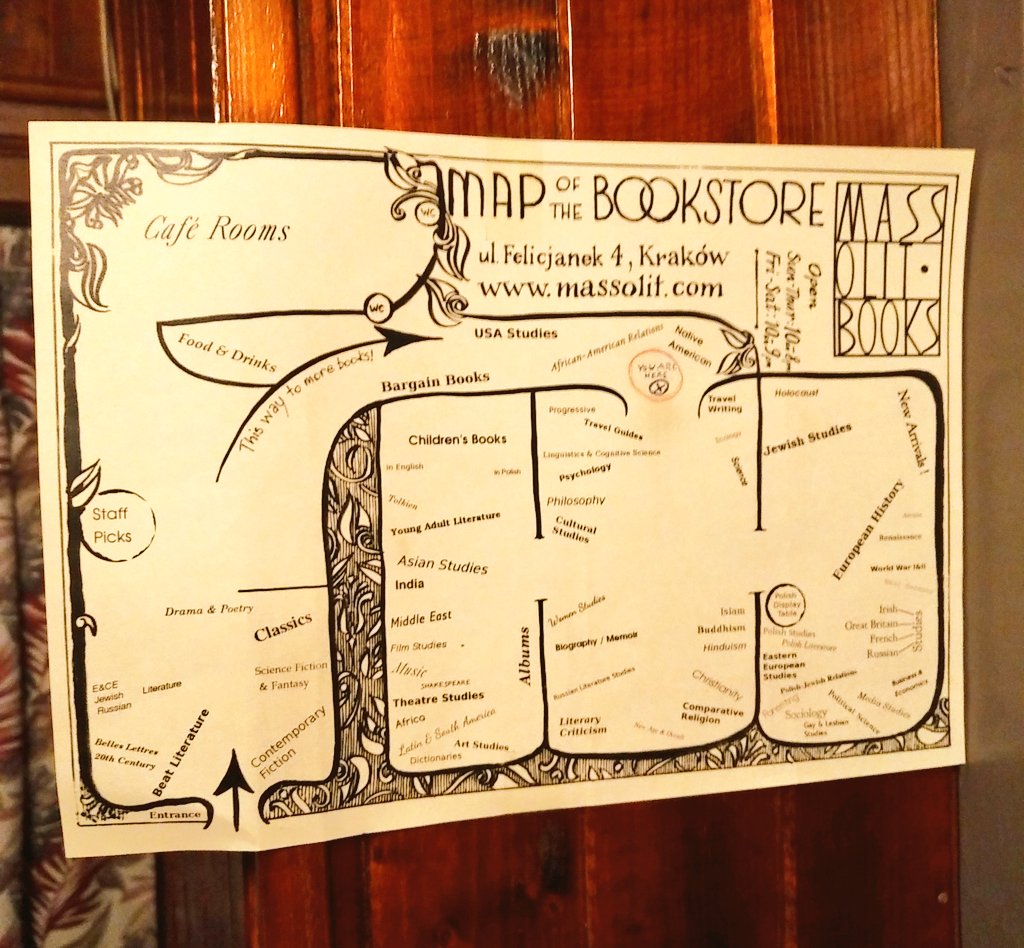 MAP OF THE BOOKSTORE
ul. Felicjanek 4, Kraków
www.massolit.com
Open
Sun-Thur: 10-8
Fri-Sat: 10-9
MASS
OLIT•
BOOKS
Café Rooms
WC
WC
Food & Drinks
This way to more books!
USA Studies
African-American Relations
Native
American
YOU ARE
HERE
Bargain Books
Staff
Picks
Drama & Poetry
Classics
Science Fiction
& Fantasy
E&CE
Jewish
Russian
Literature
Belles Lettres
20th Century
Beat Literature
Contemporary
Fiction
Entrance
Children's Books
in English
in Polish
Tolkien
Young Adult Literature
Asian Studies
India
Middle East
Film Studies
Music
SHAKESPEARE
Theatre Studies
Africa
Latin & South America
Art Studies
Dictionaries
Albums
Progressive
Travel Guides
Linguistics & Cognitive Science
Psychology
Philosophy
Cultural
Studies
Travel
Writing
Ecology
Science
Women Studies
Biography / Memoir
Russian Literature Studies
Literary
Criticism
New Age & Occult
Islam
Buddhism
Hinduism
Christianity
Comparative
Religion
Holocaust
Jewish Studies
New Arrivals!
European History
Renaissance
World War I&II
Polish
Display
Table
Polish Studies
Polish Literature
Eastern
European
Studies
Polish-Jewish Relations
Irish
Great Britain
French
Russian
Studies
Business &
Economics
Media Studies
Political Science
Sociology
Gay & Lesbian
Studies